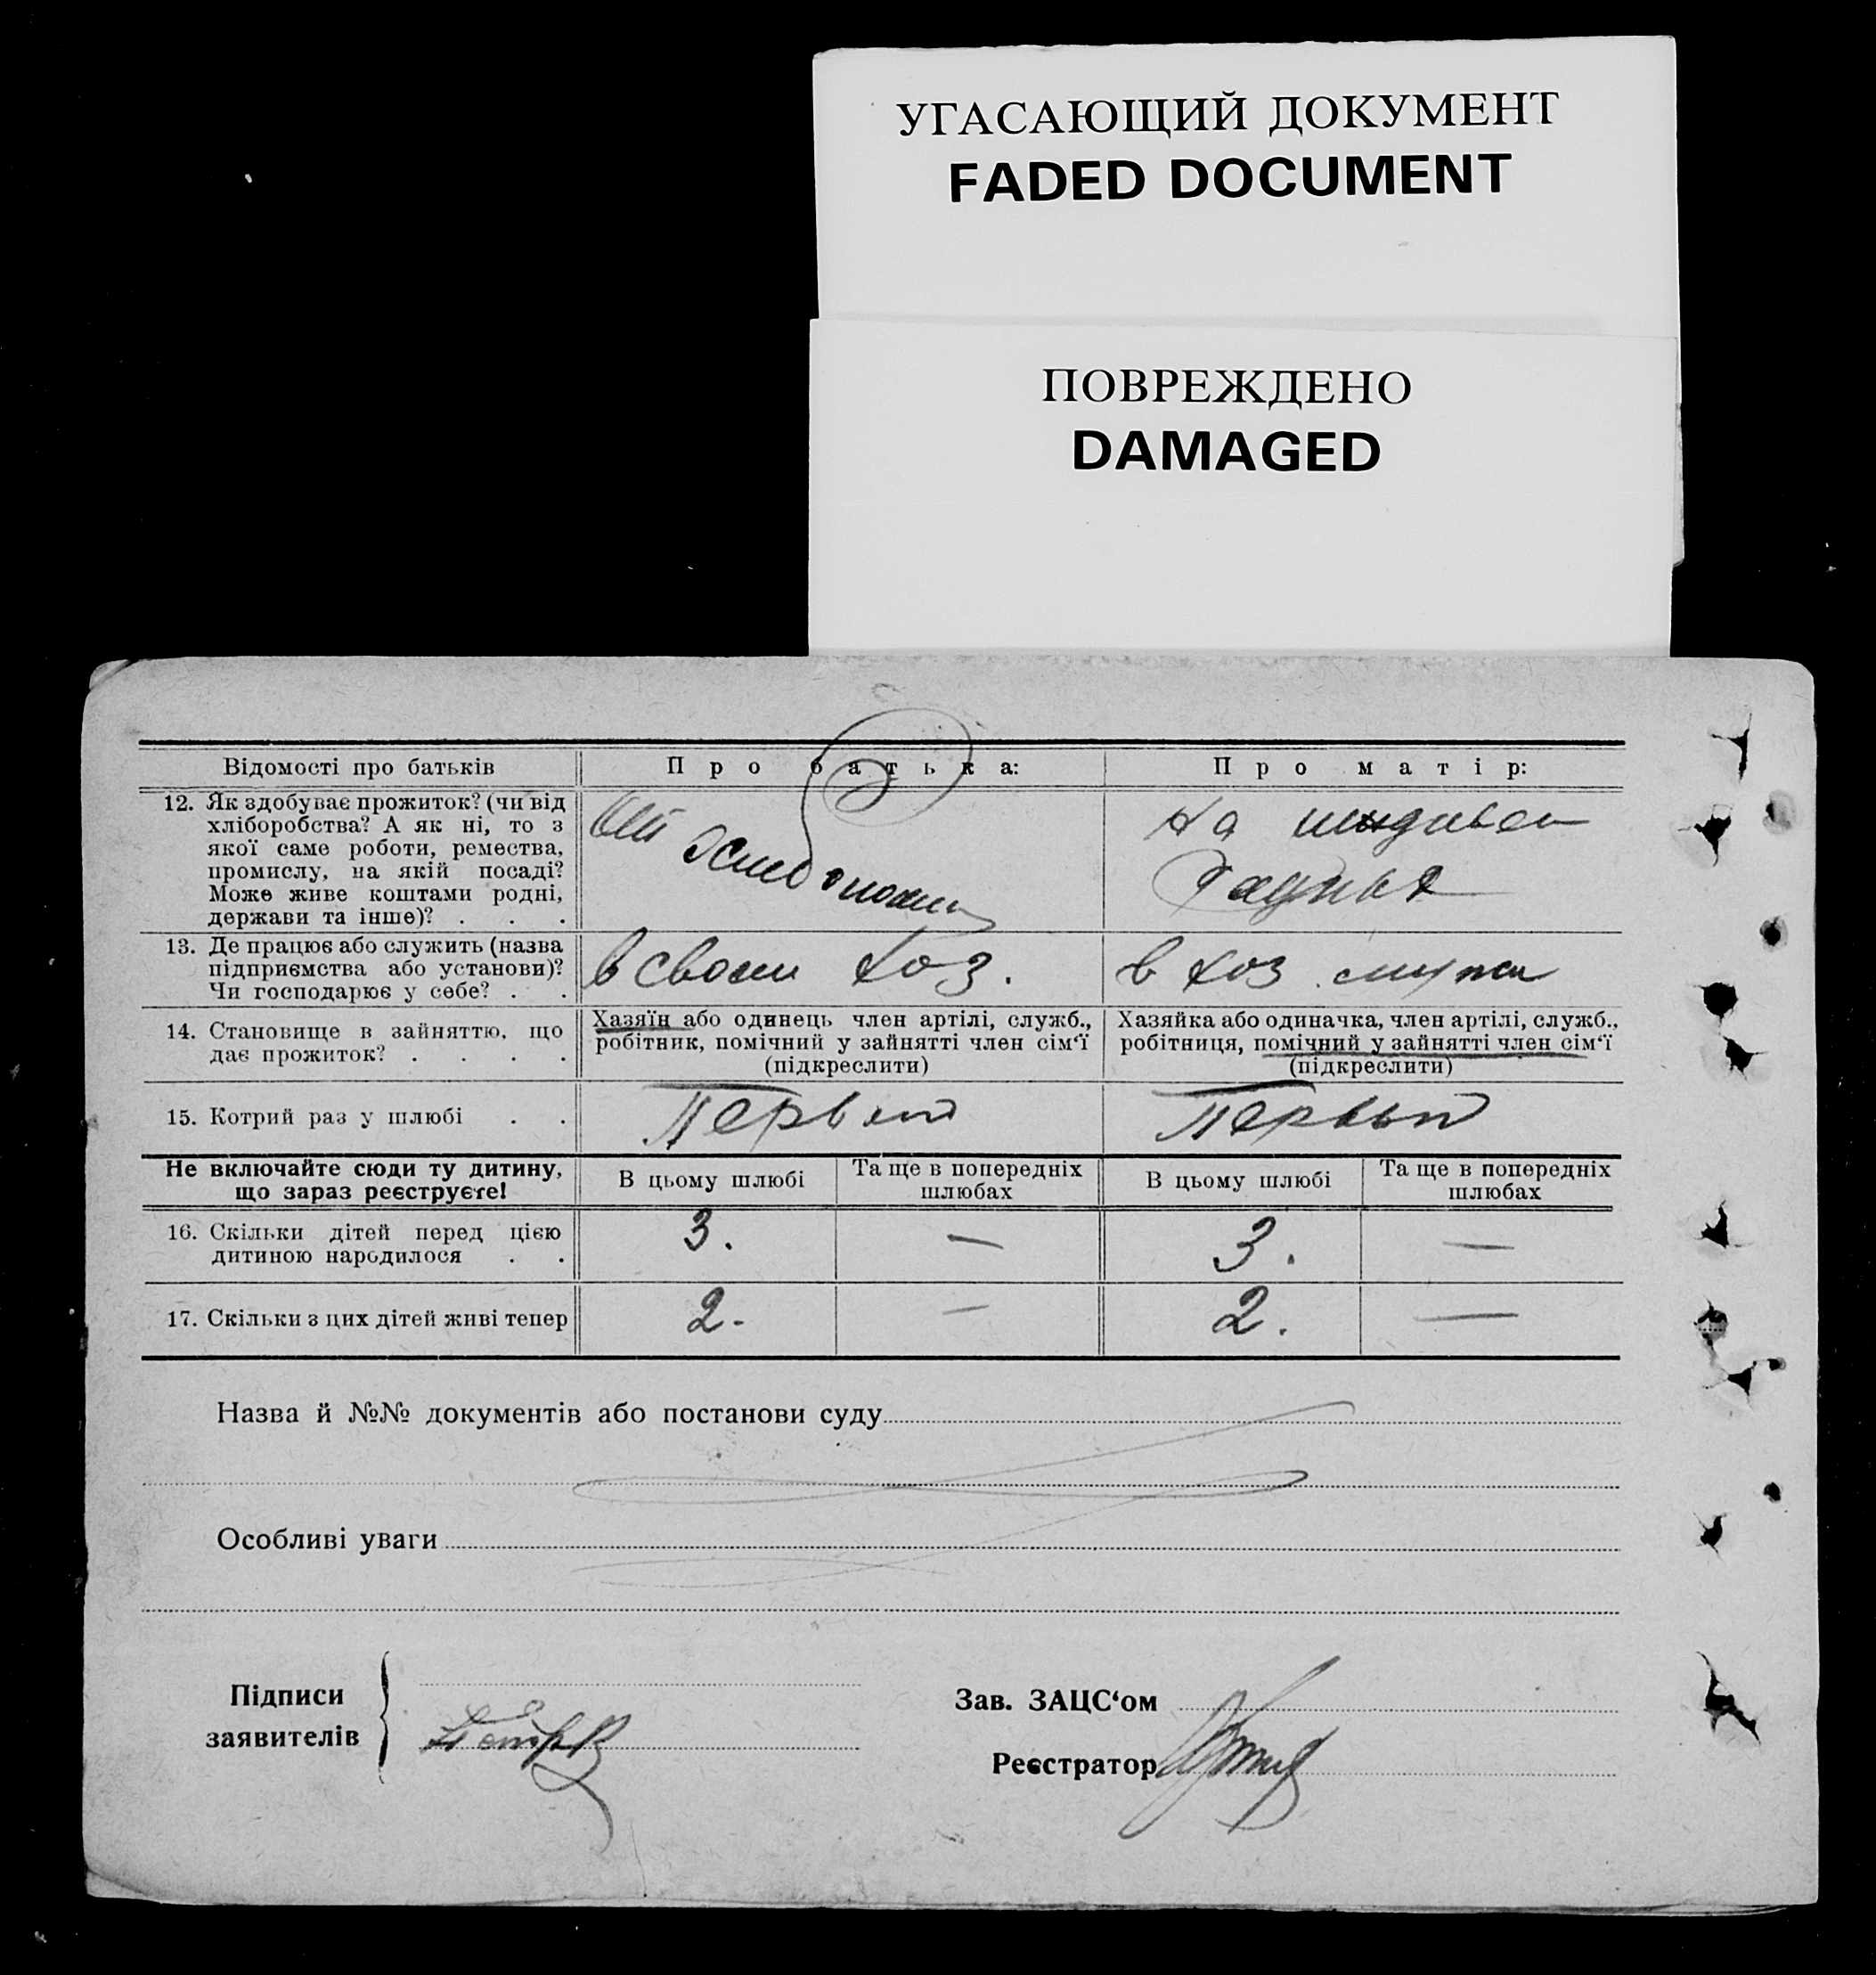 УГАСАЮЩИЙ ДОКУМЕНТ
FADED DOCUMENT
ПОВРЕЖДЕНО
DAMAGED
Відомості про батьків
Про батька:
Про матір:
12. Як здобуває прожиток? (чи від
хліборобства? А як ні, то з
якої саме роботи, ремества,
промислу, на якій посаді?
Може живе коштами родні,
держави та інше)? . . .
На
13. Де працює або служить (назва
підприємства або установи)?
Чи господарює у себе? . .
в своем хоз.
в хоз. мужа
14. Становище в зайняттю, що
дає прожиток? . . . .
Хазяїн або одинець член артілі, служб.,
робітник, помічний у зайнятті член сім‘ї
(підкреслити)
Хазяйка або одиначка, член артілі, служб.,
робітниця, помічний у зайнятті член сім‘ї
(підкреслити)
15. Котрий раз у шлюбі . .
Первый
Первый
Не включайте сюди ту дитину,
що зараз реєструєте!
В цьому шлюбі
Та ще в попередніх
шлюбах
В цьому шлюбі
Та ще в попередніх
шлюбах
16. Скільки дітей перед цією
дитиною народилося . .
3. — 3. —
17. Скільки з цих дітей живі тепер
2. — 2. —
Назва й №№ документів або постанови суду
Особливі уваги
Підписи
заявителів
Зав. ЗАЦС‘ом
Реєстратор